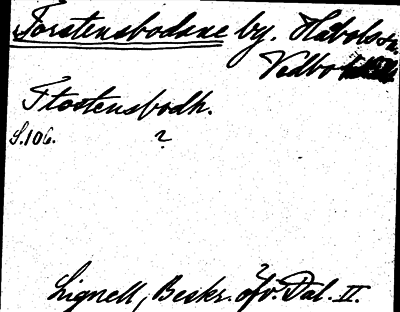 Torstensbodane by. Håbolssn.
Vedbo
Ttostensbodh.
S.106. ?
Lignell, Beskr. öfv. Dal. II.